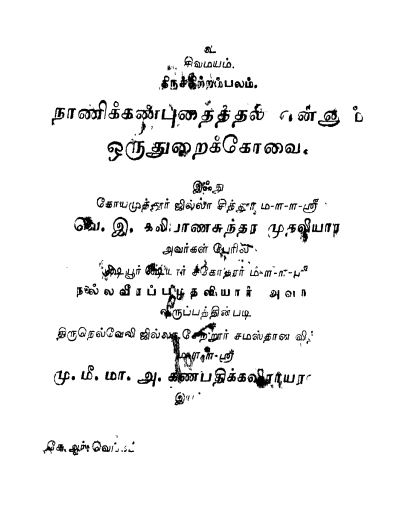 உ
சிவமயம்.
திருச்சிற்றம்பலம்.
நாணிக்கண்புதைத்தல் என்னும்
ஒருதுறைக்கோவை.
இஃது
கோயமுத்தூர் ஜில்லா சித்தூர் ம-ள-ள-ஸ்ரீ
வெ. இ. கலியாணசுந்தர முதலியார்
அவர்கள் பேரில்
சகோதரர்
நல்லவீரப்பமுதலியார்
விருப்பத்தின்படி
திருநெல்வேலி ஜில்லா சேற்றூர் சமஸ்தான
ம-ள-ள-ஸ்ரீ
மு. மீ. மா. அ. கணபதிக்கவிராயர
கே. ஆர்.